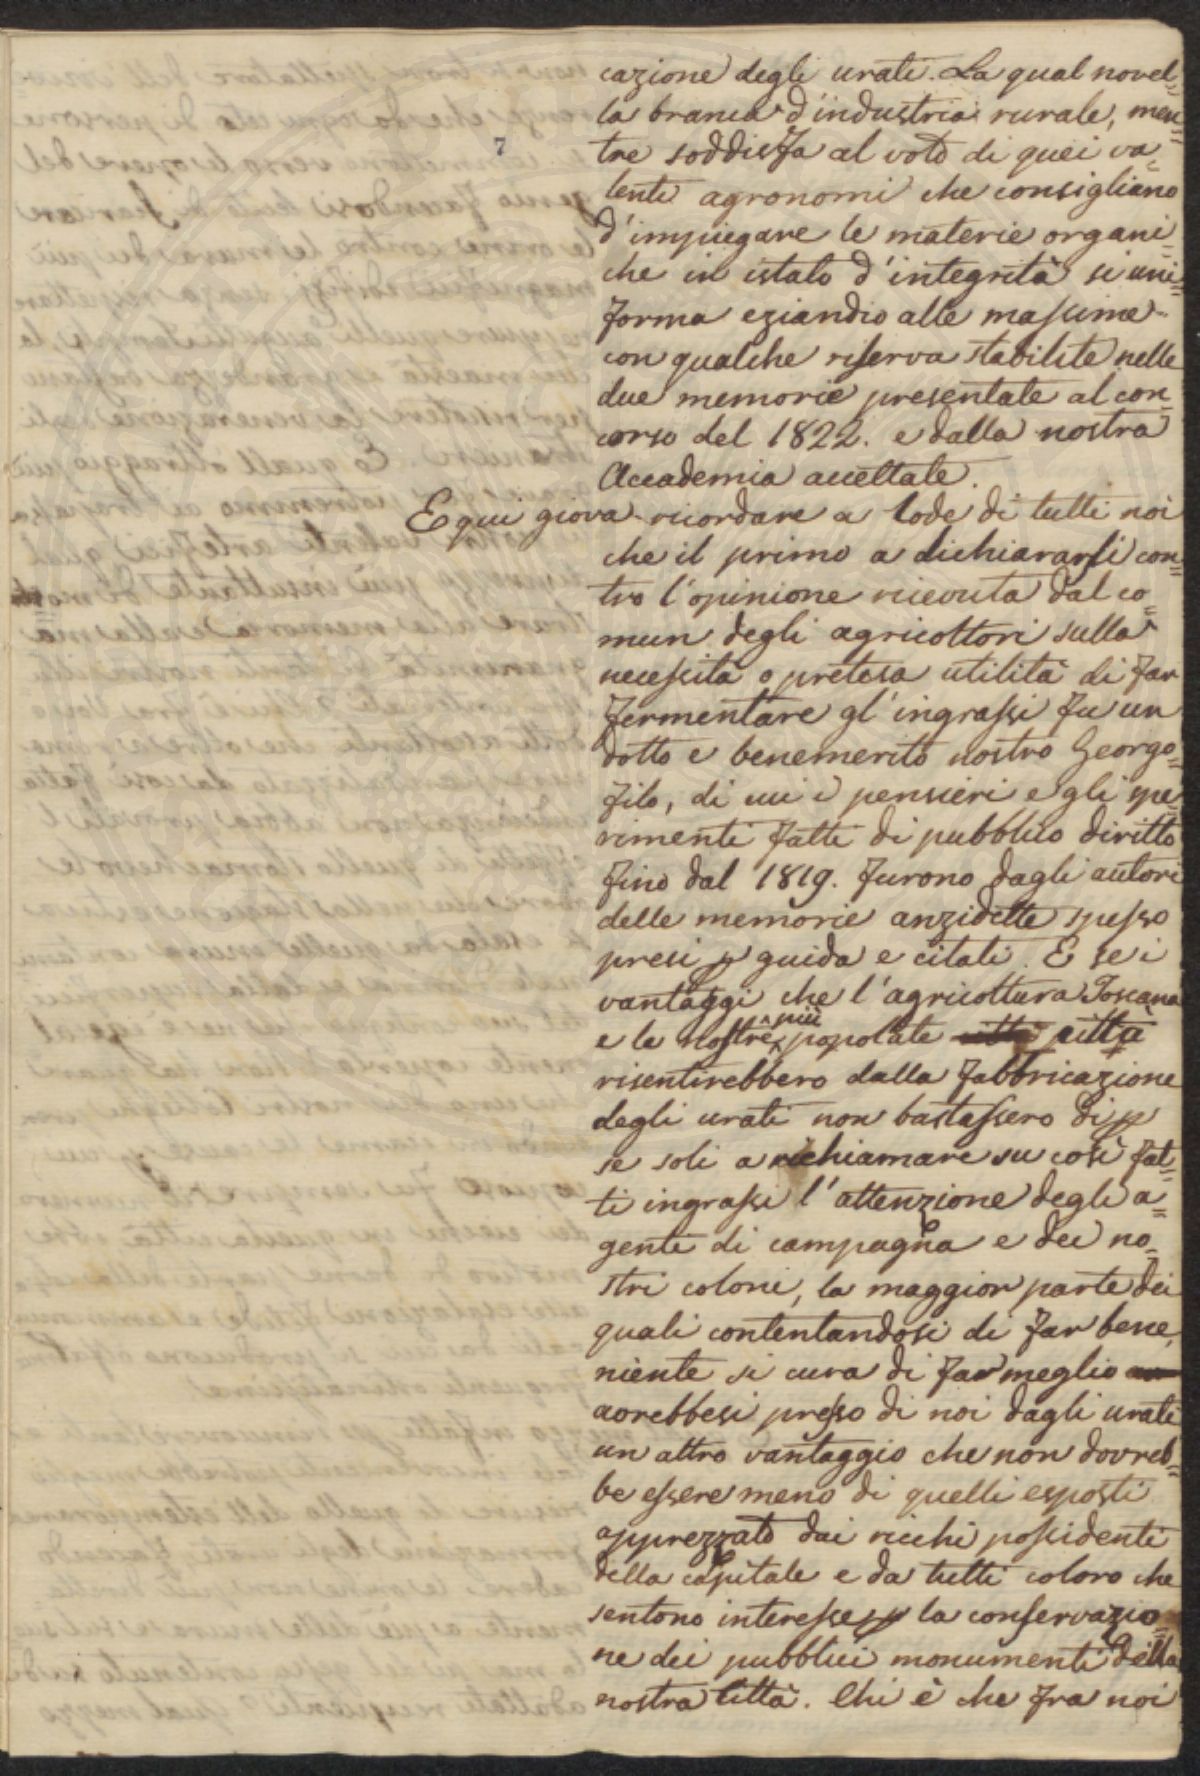 cazione degli urati. La qual novel=
la branca d'industria rurale, men=
7
tre soddisfa al voto di quei va=
lenti agronomi che consigliano
d'impiegare le materie organi=
che in istato d'integrità si uni=
forma eziandio alle massime
con qualche riserva stabilite nelle
due memorie presentate al con=
corso del 1822. e dalla nostra
Accademia accettate.
E qui giova ricordare a lode di tutti noi
che il primo a dichiararsi con=
tro l'opinione ricevuta dal co=
mun degli agricoltori sulla
necessità o pretesa utilità di far
fermentare gl'ingrassi fu un
dotto e benemerito nostro Georgo=
filo, di cui i pensieri e gli spe=
rimenti fatti di pubblico diritto
fino dal 1819. furono dagli autori
delle memorie anzidette spesso
presi p guida e citati. E se i
vantaggi che l'agricoltura Toscana
e le nostre più popolate città
risentirebbero dalla fabbricazione
degli urati non bastassero di p
se soli a richiamare su così fat=
ti ingrassi l'attenzione degli a=
genti di campagna e dei no=
stri coloni, la maggior parte dei
quali contentandosi di far bene,
niente si cura di far meglio
aorebbesi presso di noi dagli urati
un altro vantaggio che non dovreb=
be essere meno di quelli esposti
apprezzato dai ricchi possidenti
della capitale e da tutti coloro che
sentono interesse p la conservazio=
ne dei pubblici monumenti della
nostra città. Chi è che fra noi